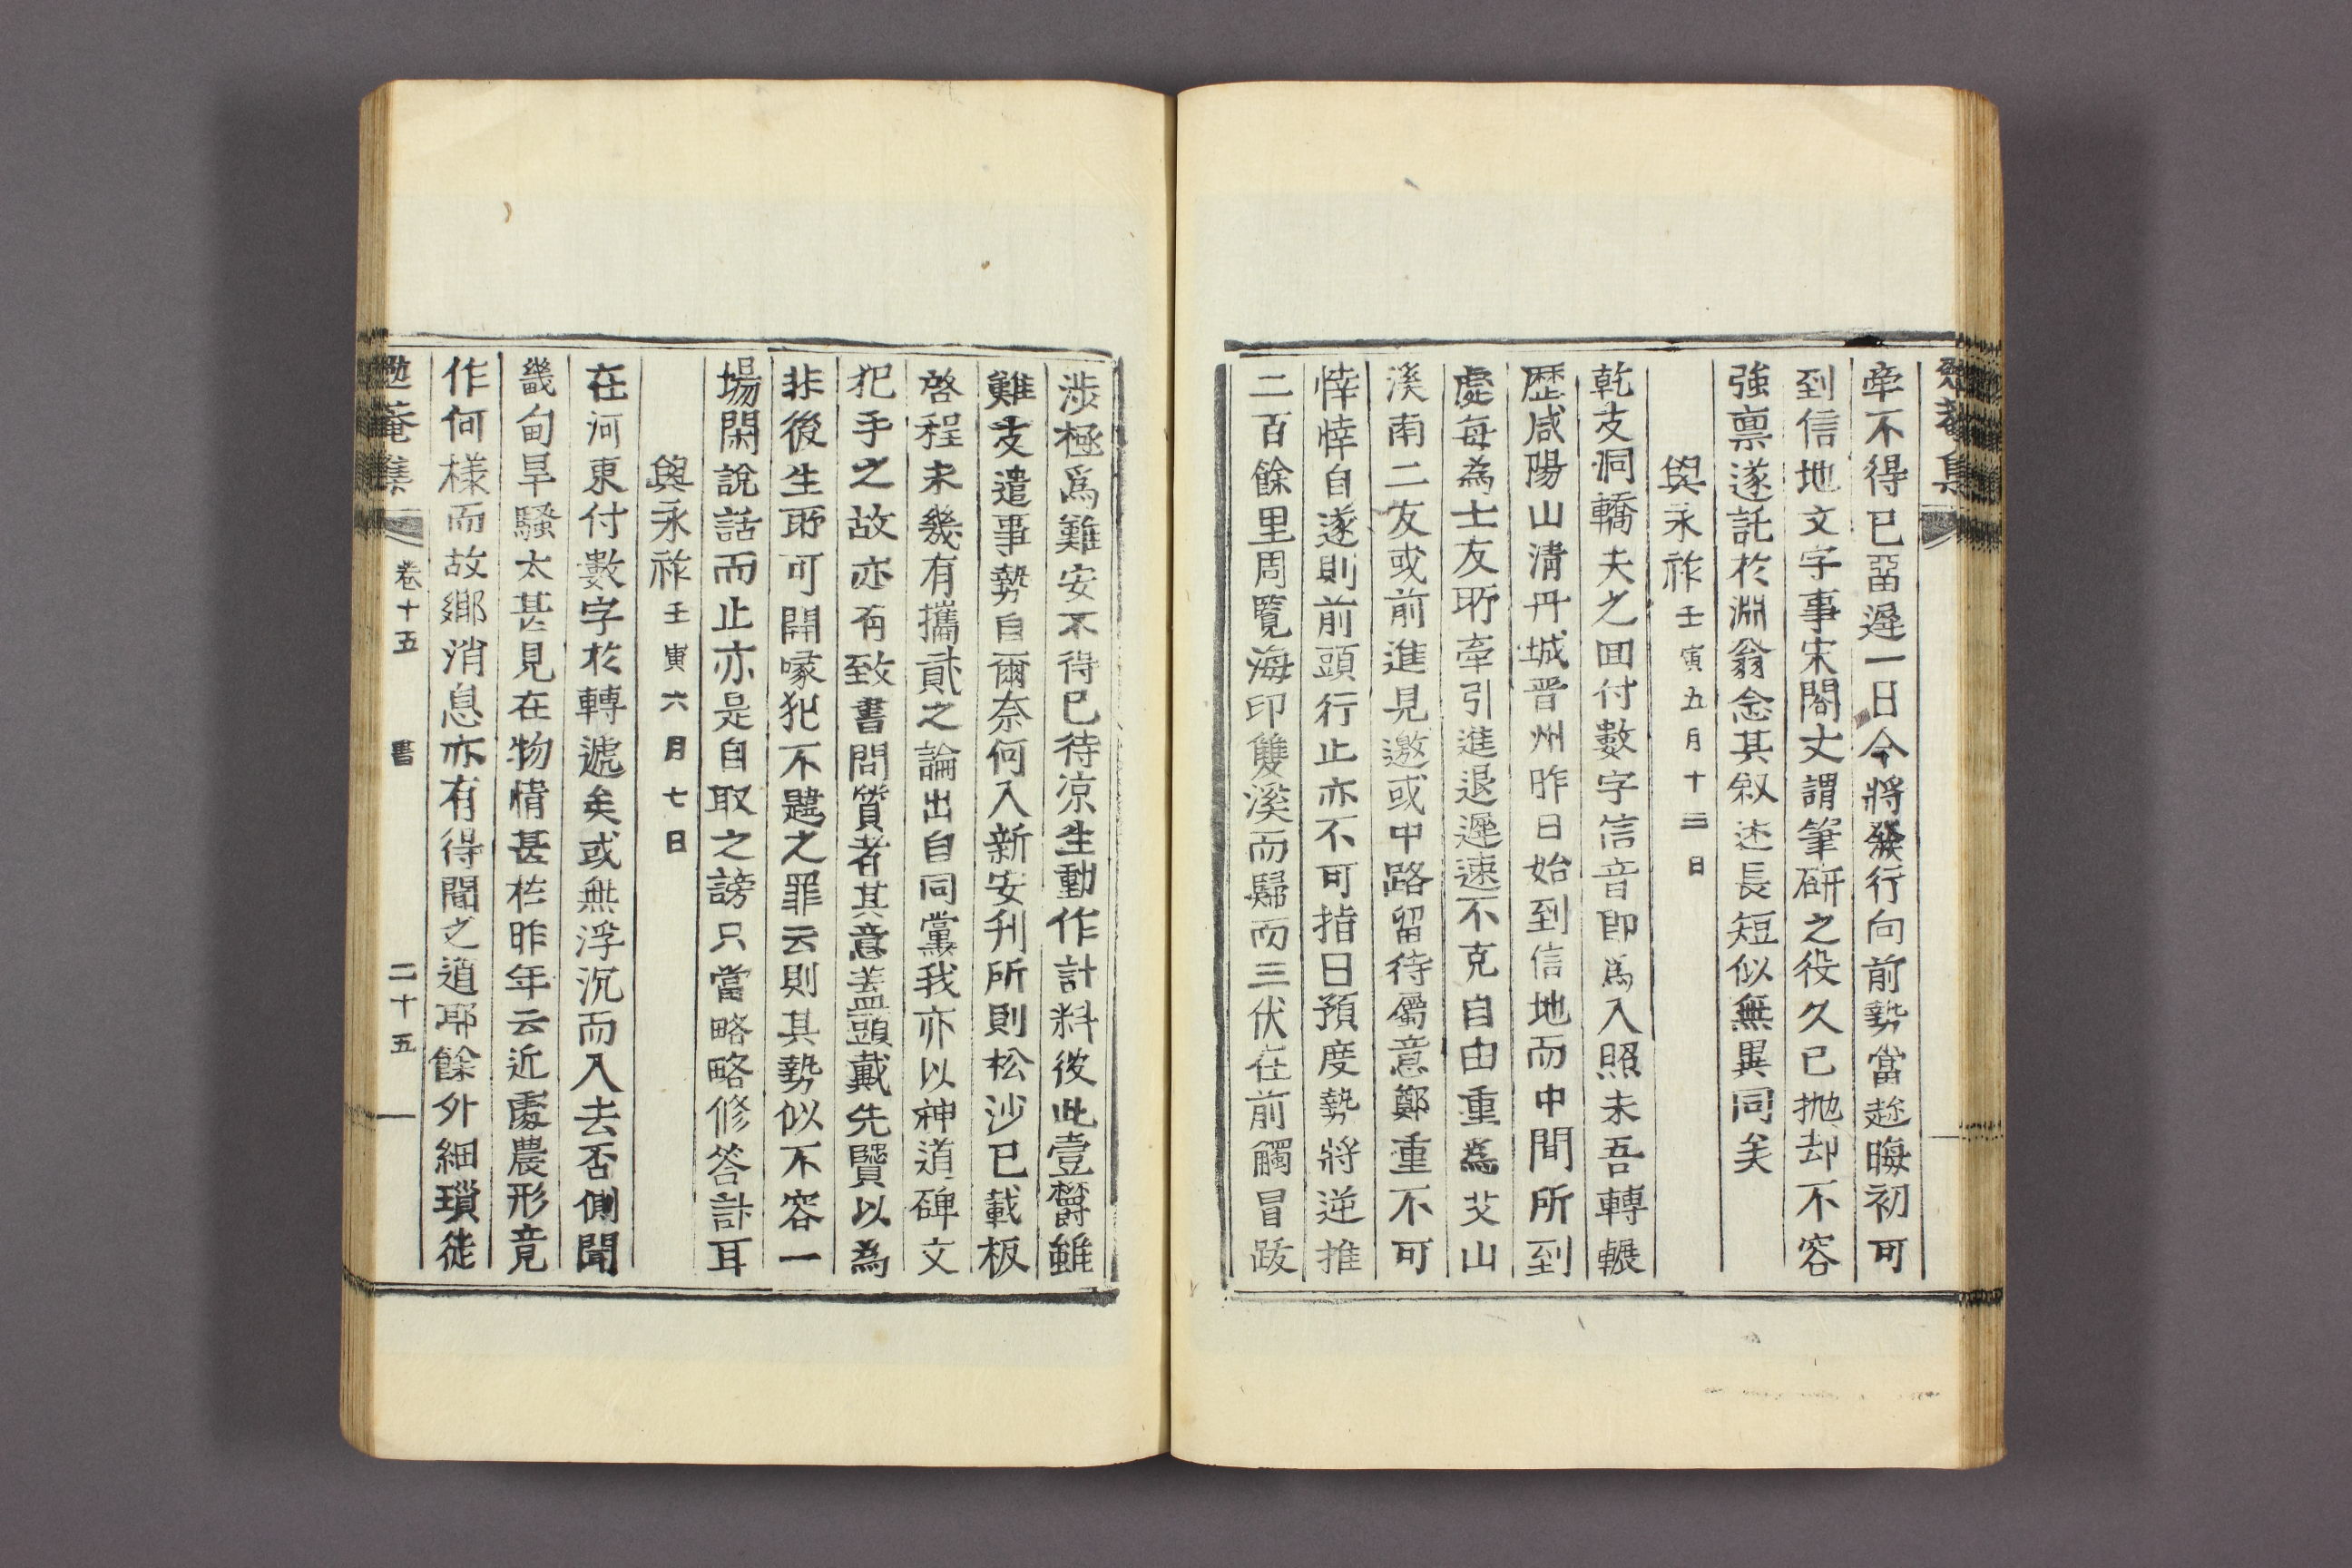 勉菴集
牽不得已畱遲一日今將發行向前勢當趁晦初可
到信地文字事宋閣丈謂筆硏之役久已抛却不容
強禀遂託於淵翁念其叙述長短似無異同矣
與永祚壬寅五月十三日
乾支洞轎夫之回付數字信音卽爲入照未吾轉輾
歷咸陽山淸丹城晋州昨日始到信地而中間所到
處每為士友所牽引進退遲速不克自由重為艾山
溪南二友或前進見邀或中路留待屬意鄭重不可
悻悻自遂則前頭行止亦不可指日預度勢將逆推
二百餘里周覽海印雙溪而歸而三伏在前觸冒跋
涉極爲難安不得已待凉生動作計料彼此壹欝雖
難支遣事勢自爾奈何入新安刋所則松沙已載板
啓程未幾有攜貳之論出自同黨我亦以神道碑文
犯手之故亦有致書問質者其意盖頭戴先賢以為
非後生所可開喙犯不韙之罪云則其勢似不容一
場閑說話而止亦是自取之謗只當略略修答計耳
與永祚壬寅六月七日
在河東付數字於轉遞矣或無浮沉而入去否側聞
畿甸旱騷太甚見在物情甚於昨年云近處農形竟
作何樣而故鄕消息亦有得聞之道耶餘外細瑣徒
勉菴集 卷十五 書 二十五